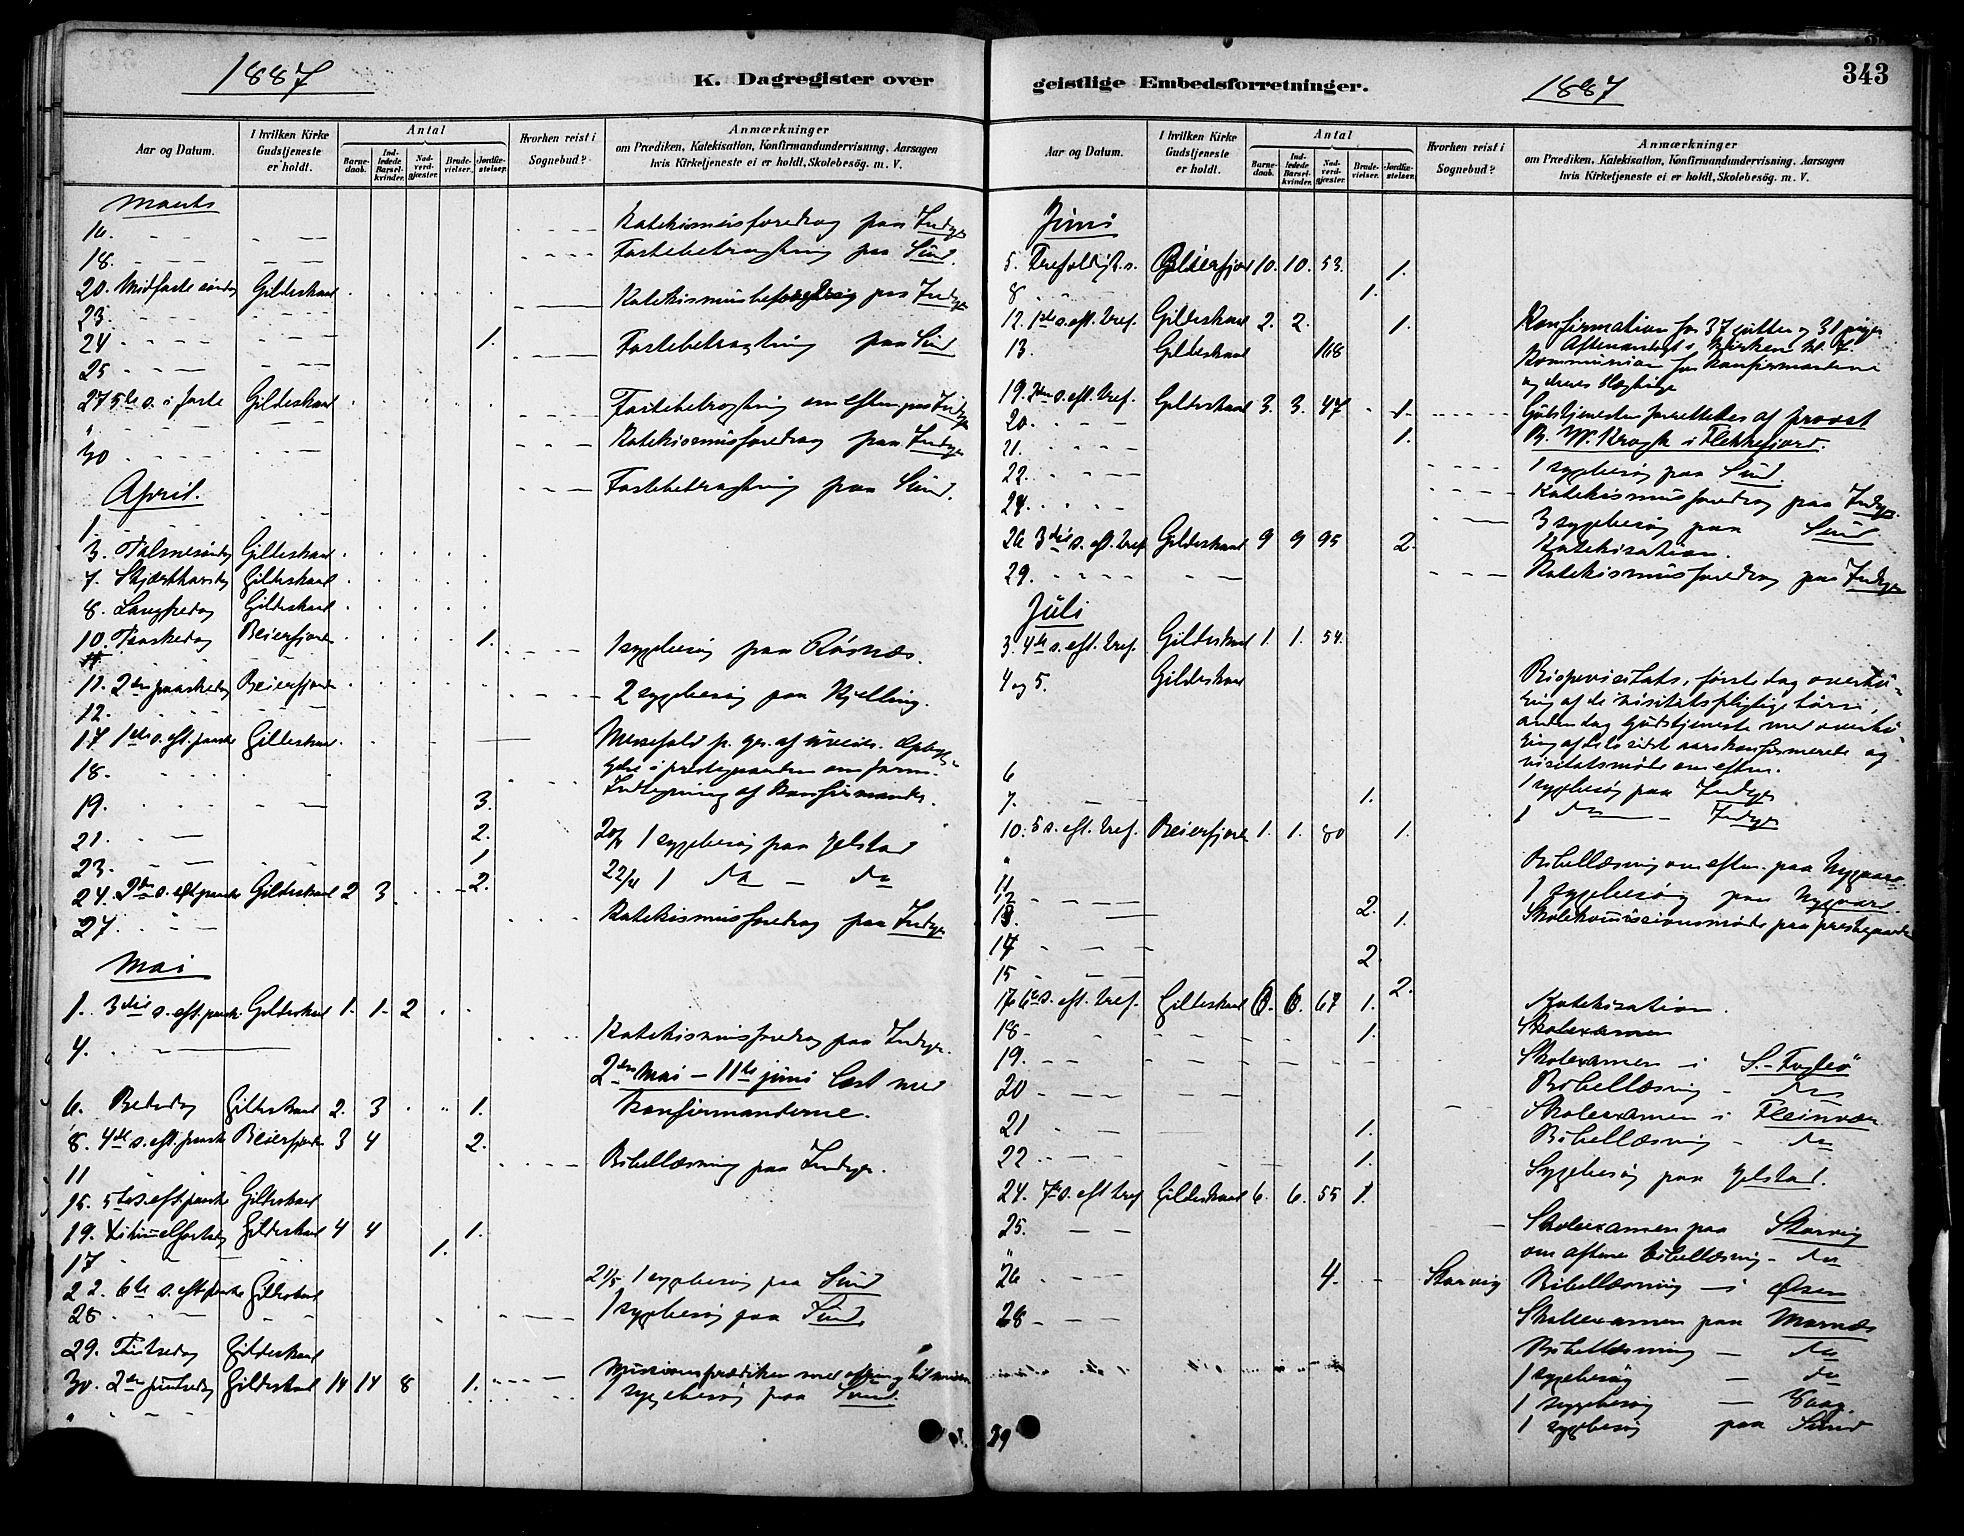 1887
K. Dagregister over
Aar og Datum.
I hvilken Kirke Gudstjeneste er holdt.
Antal
Barnedaab.
Indledede Barselkvinder.
Nadverdgjæster.
Brudevielser.
Jordfæstelser.
Hvorhen reist i Sognebud?
Anmærkninger
om Prædiken, Katekisation, Konfirmandundervisning, Aarsagen
hvis Kirketjeneste ei er holdt, Skolebesög. m. V.
Marts
16. Katekismusforedrag paa Indyr
18. Fastebetragtning paa Sund.
20. Midfaste söndag Gildeskaal
23. paa Indyr
24 1.
25 Fastebetragtning paa Sund
27 5te s. i faste Gildeskaal
" Fastebetragtning om eften. paa Indyr
30 Katekismusforedrag paa Indyr
April.
1. Fastebetragtning paa Sund.
3. Palmesöndag Gildeskaal
7. Skjærthorsdag Gildeskaal
8. Langfredag Gildeskaal
10. Paaskedag Beierfjorden 1.
1 sygebesög paa Rösnæs.
11. 2den paaskedag Beierfjorden
12. 2 sygebesög paa Kjelling.
17 1ste s. eft. paaske Gildeskaal. Messefald p. gr. af uveir.
18. i prestegaarden om form.
19. 3. Indtegning af konfirmander.
21. 2. 20/4 1 sygebesög paa Jelstad
23. 1 22/4 1 do — do
24. 2den s. eft paaske Gildeskaal 2 3. 2.
27. Katekismusforedrag paa Indyr
Mai
1. 3die s. eft. paaske Gildeskaal 1. 1. 2
4. Katekismusforedrag paa Indyr.
2den Mai – 11te juni læst med
6. Bededag Gildeskaal 2. 3 1. konfirmanderne.
8. 4de s. eft. paaske Beierfjorden 3 4 2.
11 Bibellæsning paa Indyr.
15. 5te s. eft. paaske Gildeskaal
19. Kr. himmelfartsdag Gildeskaal 4 4 1.
17 1.
22. 6te s. eft. paaske Gildeskaal 21/5 1 sygebesög paa Sund
25 1 sygebesög paa Sund.
29. Pintsedag Gildeskaal
30. 2den pintsedag Gildeskaal 14 14 8 1. Missionsprædiken med offring til missionen
" 1 sygebesög paa Sund.
geistlige Embedsforretninger.
1887
343
Aar og Datum.
I hvilken Kirke Gudstjeneste er holdt.
Antal
Barnedaab.
Indledede Barselkvinder.
Nadverdgjæster.
Brudevielser.
Jordfæstelser.
Hvorhen reist i Sognebud?
Anmærkninger
om Prædiken, Katekisation, Konfirmandundervisning, Aarsagen
hvis Kirketjeneste ei er holdt, Skolebesög. m. V.
Juni
5. Trefoldigh. s. Beierfjord 10. 10. 53. 1.
8 1.
12. 1ste s. eft. tref. Gildeskaal 2. 2. 1. Konfirmation for 37 gutter og 31 piger
Aftenandagt i kirken kl. 7.
13. Gildeskaal 168 Kommunion for konfirmanterne
og deres slægtninge
19. 2den s. eft. tref. Gildeskaal 3. 3. 47 1. Gudstjenesten forrettedes af provst
20. 1. B. W. Krogh i Flekkefjord.
21.
22. 1 sygebesög paa Sund.
24. Katekismusforedrag paa Indyr.
3 sygebesög paa Sund
26 3die s. eft. tref. Gildeskaal 9 9 95 2. Katekisation.
29. Katekismusforedrag paa Indyr
Juli
3. 4de s. eft. tref. Gildeskaal 1 1. 54.
4 og 5. Gildeskaal Bispevisitats, første dag overhö-
ring af de visitatspligtige börn,
anden dag gudstjeneste med overhö-
ring af de sidst aars konfirmerede og
visitatsmöde om eften.
6 1 sygebesög paa Indyr
7. 1. 1 do — Indyr
10. 5 s. eft. tref. Beierfjord 1. 1. 80 1.
" Bibellæsning om eften. paa Nygaard.
11 1 sygebesög paa Nygaard.
12 2. Skolekommissionsmöde paa prestegaarden
13. 1.
14 2.
15
17 6te s. eft. tref. Gildeskaal 6. 6. 67 1. 2. Katekisation.
18 1. Skolexamen
19. Skolexamen i S.-Fugleö
20 Bibellæsning – do
Skoleexamen i Fleinvær
21 1. Bibellæsning – do
22 1. Sygebesög paa Jelstad.
24. 7de s. eft tref Gildeskaal 6. 6. 55 1.
25. Skoleexamen paa Storvig
" om aftenen bibellæsning – do
26 4. Storvig Bibellæsning i Ölsen
28 Skoleexamen paa Mornæs
Bibellæsning — do
1 sygebesög — do
1 sygebesög — Vaag.
29 1 sygebesög paa Sund